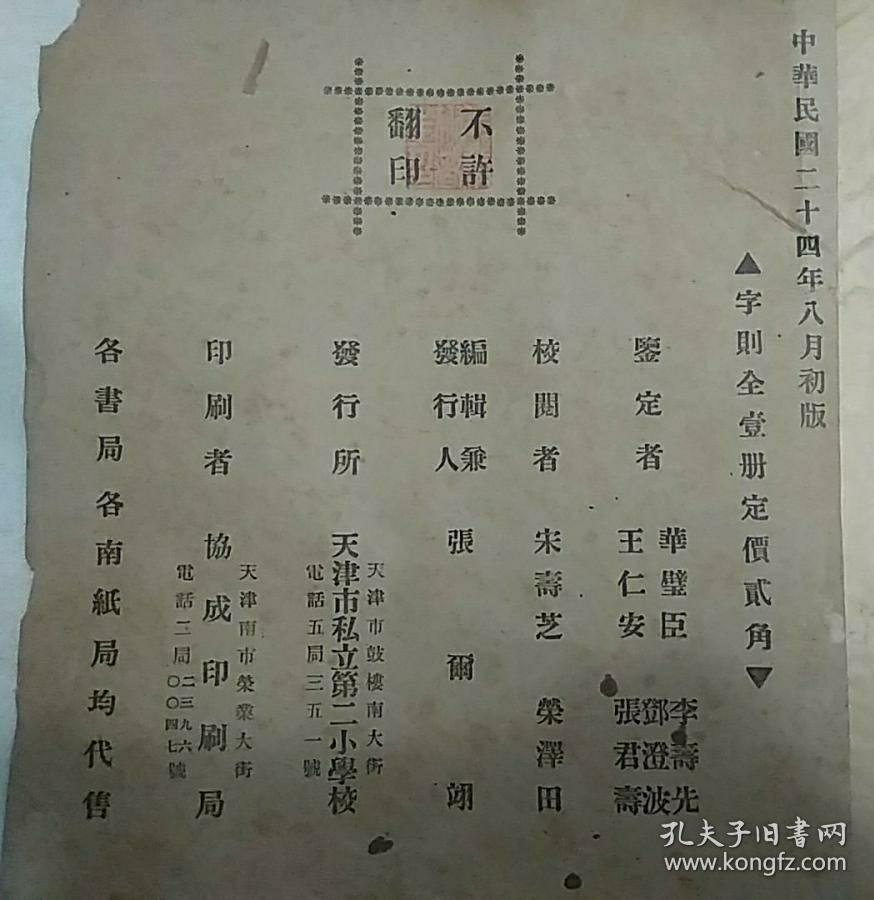 中華民國二十四年八月初版
▲字則全壹册定價貳角▼
不許
翻印
鑒定者
華璧臣
王仁安
李壽先
鄧澄波
張君壽
校閱者 宋壽芝 榮澤田
編輯兼
發行人 張爾翊
發行所
天津市鼓樓南大街
天津市私立第二小學校
電話五局三五一號
印刷者
天津南市榮業大街
協成印刷局
電話二局二三九六
〇〇四七號
各書局各南紙局均代售
孔夫子旧书网
www.kongfz.com